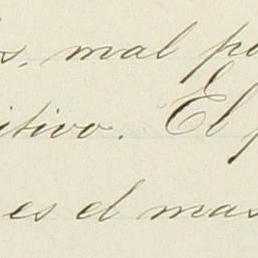 s, mal po
itivo. El p
es el mas